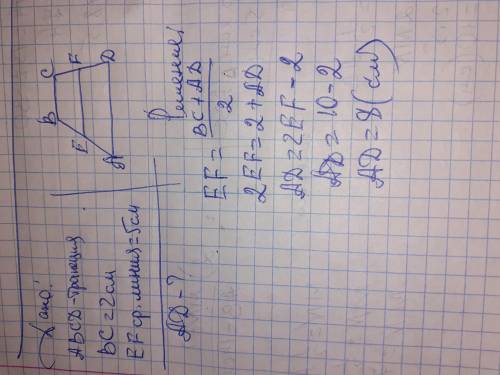 Дано:
ABCD-трапеция
BC=2см
EF ср. линия=5см
AD-?
B C
E F
A D
Решение:
EF = BC+AD
2
2EF=2+AD
AD=2EF-2
AD=10-2
AD=8(см)